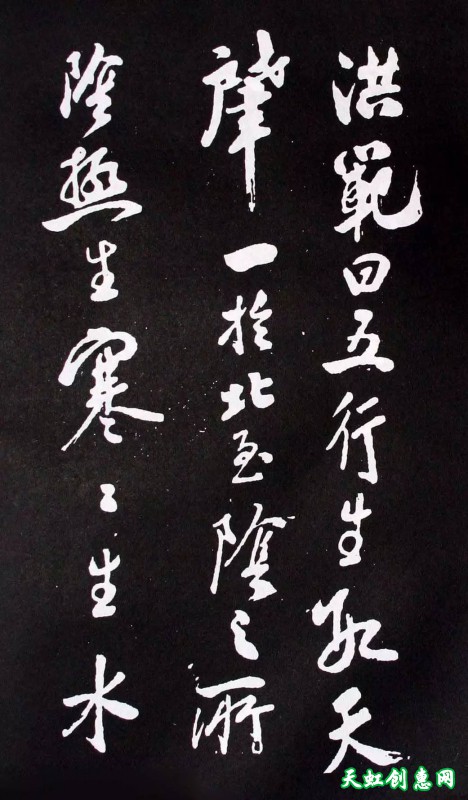 洪範曰五行生數天
肇一於北至陰之所
陰極生寒〻生水
天虹创惠网